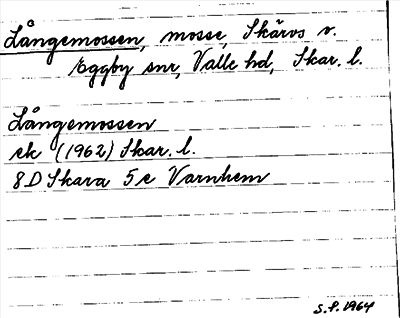 Långemossen, mosse, Skärvs s.
Eggby snr, Valle hd, Skar. l.
Långemossen
ek (1962) Skar. l.
8D Skara 5e Varnhem
S.F. 1964